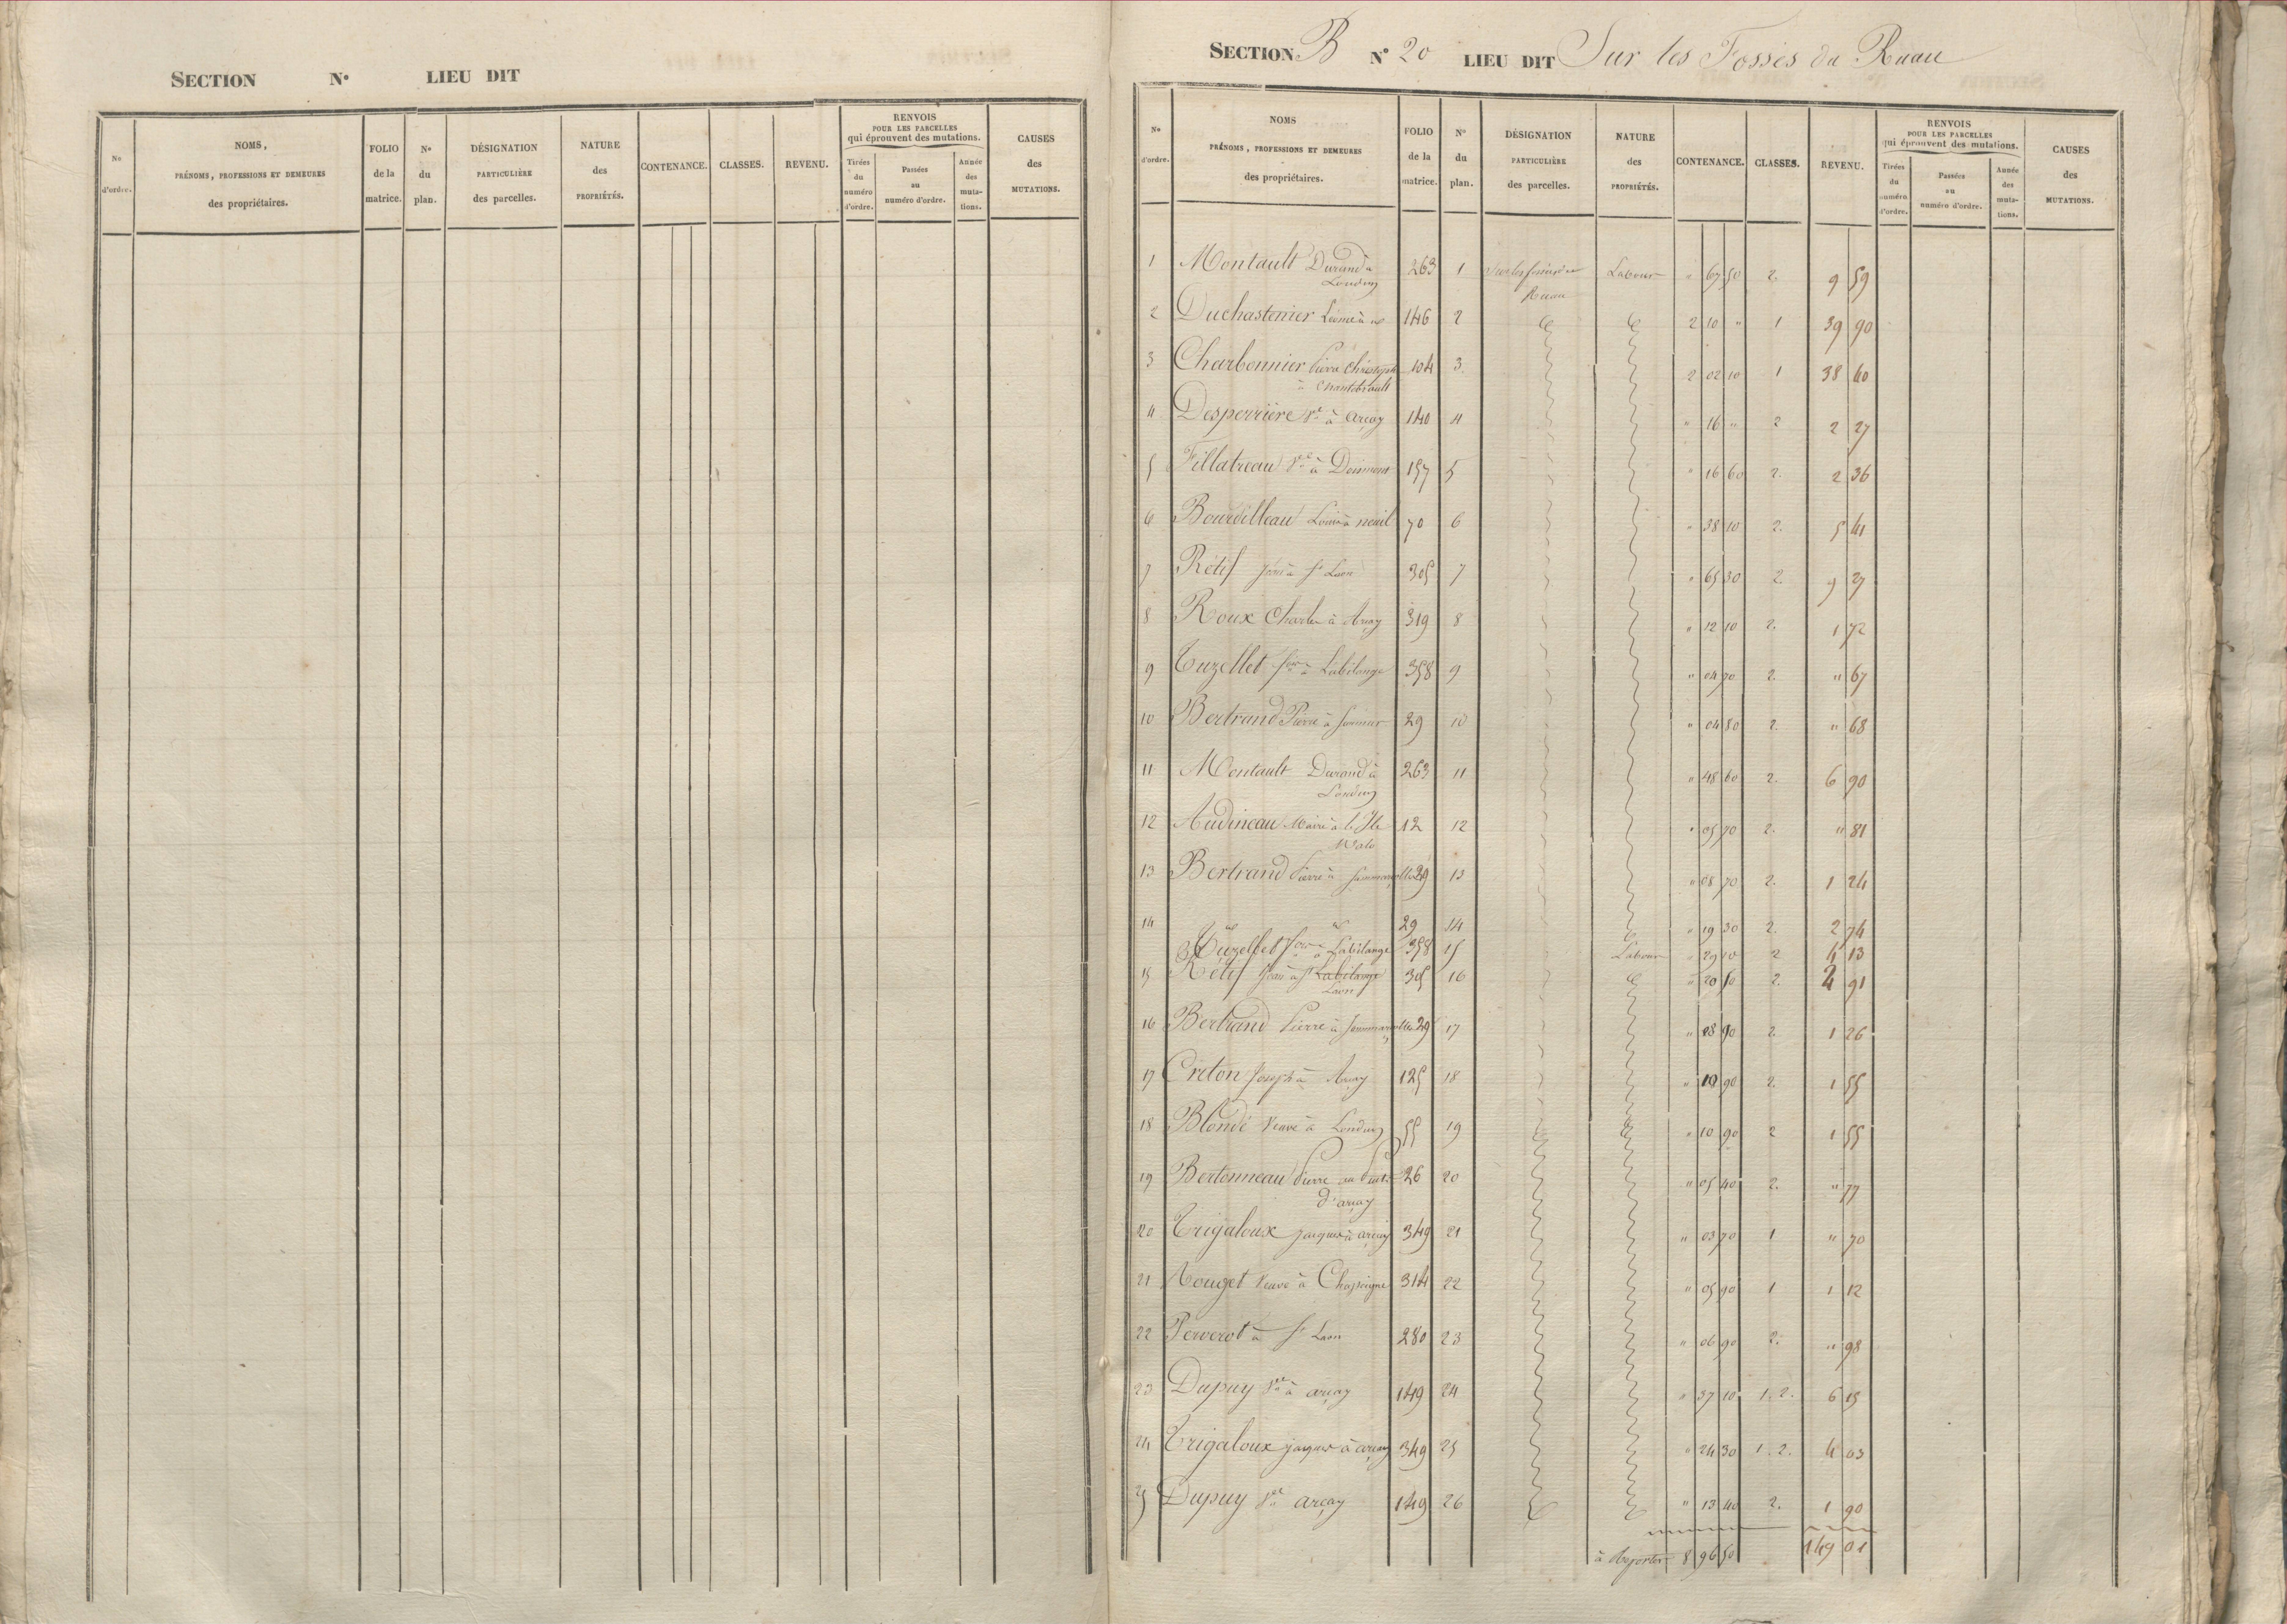 SECTION N° LIEU DIT
N° d'ordre. NOMS, PRÉNOMS, PROFESSIONS ET DEMEURES des propriétaires. FOLIO de la matrice. N° du plan. DÉSIGNATION PARTICULIÈRE des parcelles. NATURE des PROPRIÉTÉS. CONTENANCE. CLASSES. REVENU. RENVOIS POUR LES PARCELLES qui éprouvent des mutations. Tirées du numéro d'ordre. Passées au numéro d'ordre. Année des mutations. CAUSES des MUTATIONS.
SECTION B N° 20 LIEU DIT Sur les Fossés du Ruau
N° d'ordre. NOMS PRÉNOMS, PROFESSIONS ET DEMEURES des propriétaires. FOLIO de la matrice. N° du plan. DÉSIGNATION PARTICULIÈRE des parcelles. NATURE des PROPRIÉTÉS. CONTENANCE. CLASSES. REVENU. RENVOIS POUR LES PARCELLES qui éprouvent des mutations. Tirées du numéro d'ordre. Passées au numéro d'ordre. Année des mutations. CAUSES des MUTATIONS.
1 Montault Durand à 263 1 Labour " 67 50 2. 9 59
Loudun Ruau
2 Duchastenier 146 2 2 10 " 1 39 90
3 Charbonnier Pierre Christophe 104 3. 2 02 10 1 38 40
à Chantebrault
4 Desperrière Vve à Arçay 140 4 " 16 " 2 2 27
5 Fillatreau Vve à 157 5 " 16 60 2. 2 36
6 Bourdilleau Louis à neuil 70 6 " 38 10 2. 5 41
7 Rétif Jean à St Laon 305 7 " 65 30 2 9 27
8 Roux Charles à Arçay 319 8 " 12 10 2. 1 72
9 Tuzellet à Labilange 358 9 " 04 70 2. " 67
10 Bertrand Pierre à 29 10 " 04 80 2. " 68
11 Montault Durand à 263 11 " 48 60 2. 6 90
Loudun
12 Audineau 12 12 " 05 70 2. " 81
13 Bertrand Pierre à 29 13 " 08 70 2. 1 24
14 29 14 " 19 30 2. 2 74
Tuzellet à Labilange 358 15 Labour " 29 10 2 4 13
15 Rétif Jean à St Labilange 305 16 " 20 50 2. 2 91
Laon
16 Bertrand Pierre à 29 17 " 08 90 2. 1 26
17 Créton Joseph à Arçay 125 18 " 10 90 2. 1 55
18 Blondé Veuve à Loudun 55 19 " 10 90 2 1 55
19 Bertonneau Pierre au 26 20 " 05 40 2. " 77
d'arçay
20 Trigaloux Jacques à arçay 349 21 " 03 70 1 " 70
21 Rouget Veuve à 314 22 " 05 90 1 1 12
22 Perverot à St Laon 280 23 " 06 90 2. " 98
23 Dupuy Vve à arçay 149 24 " 37 10 1. 2. 6 15
24 Trigaloux Jacques à arçay 349 25 " 24 30 1. 2. 4 03
25 Dupuy Vve arçay 149 26 " 13 40 2. 1 90
à Reporter 8 96 50 149 01